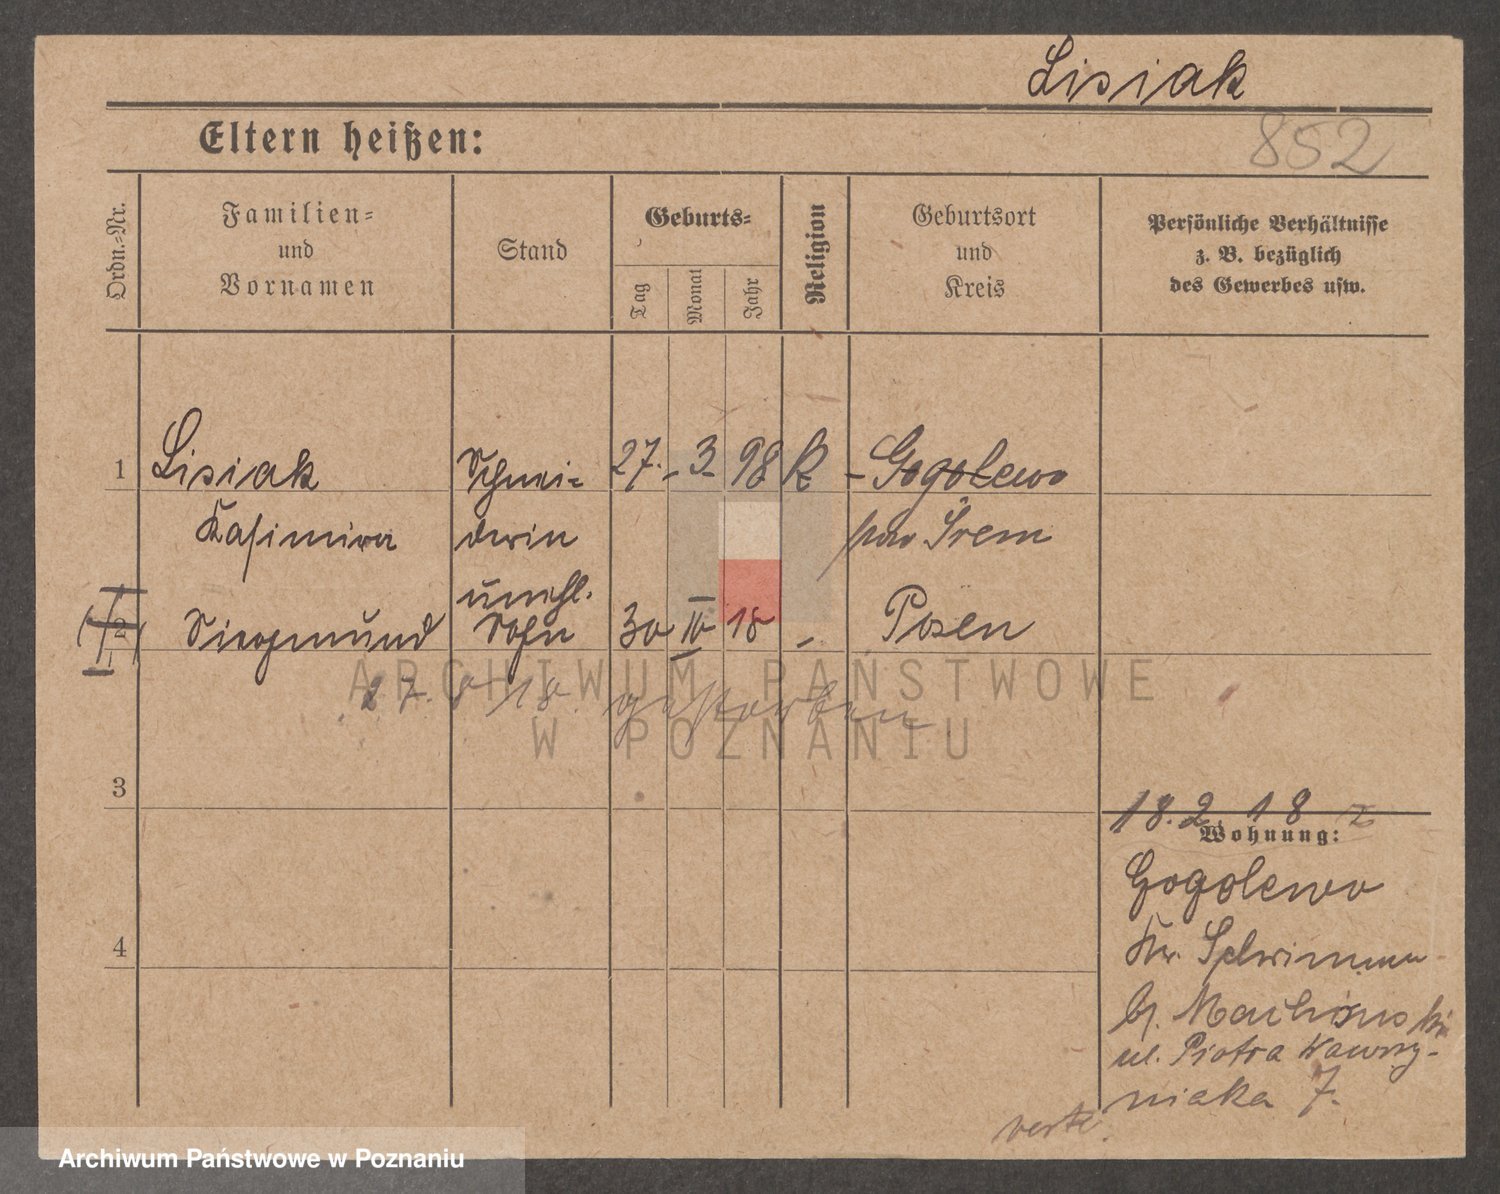 Lisiak
852
Eltern heißen:
Ordn.=Nr.
Familien=
und
Vornamen
Stand
Geburts=
Tag
Monat
Jahr
Religion
Geburtsort
und
Kreis
Persönliche Verhältnisse
z. B. bezüglich
des Gewerbes usw.
1 Lisiak Schnei= 27. 3. 98 k Gogolewo
Kasimira derin Srem
unehl.
2 Siegmund Sohn 30 IV 18 - Posen
27. 8 18. gestorben
3
18. 2. 18
Wohnung:
Gogolewo
4
Kr. Schrimm
b/.
ul. Piotra Wawrzy-
niaka 7.
ARCHIWUM PAŃSTWOWE
W POZNANIU
Archiwum Państwowe w Poznaniu